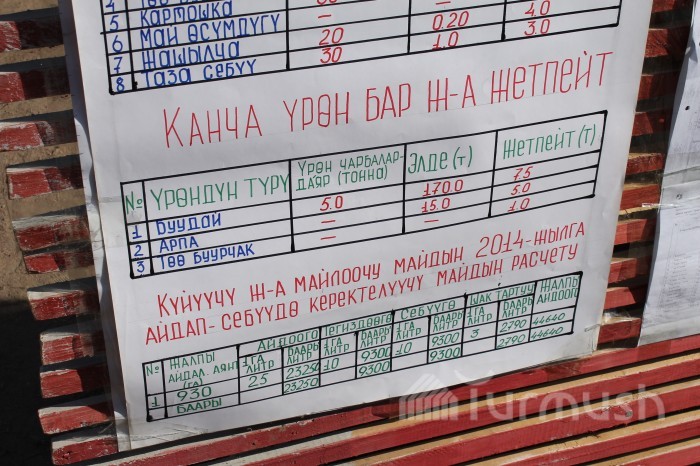 5 КАРТОШКА — — 4.0
6 МАЙ ӨСҮМДҮГҮ 20 0.20 3.0
7 ЖАШЫЛЧА 30 1.0
8 ТАЗА СЕБҮҮ
КАНЧА ҮРӨН БАР Ж-А ЖЕТПЕЙТ
№ ҮРӨНДҮН ТҮРҮ ҮРӨН ЧАРБАЛАР-ДАЯР (ТОННА) ЭЛДЕ (т) ЖЕТПЕЙТ (т)
1 БУУДАЙ 5.0 170.0 7.5
2 АРПА — 15.0 5.0
3 ТӨӨ БУУРЧАК — — 1.0
КҮЙҮҮЧҮ Ж-А МАЙЛООЧУ МАЙДЫН 2014-ЖЫЛГА
АЙДАП-СЕБҮҮДӨ КЕРЕКТЕЛҮҮЧҮ МАЙДЫН РАСЧЕТУ
№ ЖАЛПЫ АЙДАЛ. АЯНТ (га) АЙДООГО ТЕГИЗДӨӨГӨ СЕБҮҮГӨ ЧАК ТАРТУУ ЖАЛПЫ АЙДООГО
1ГА ЛИТР БААРЫ ЛИТР 1ГА ЛИТР БААРЫ ЛИТР 1ГА ЛИТР БААРЫ ЛИТР 1ГА ЛИТР БААРЫ ЛИТР
1 930 25 23250 10 9300 10 9300 3 2790 44640
БААРЫ 23250 9300 9300 2790 44640
Turmush